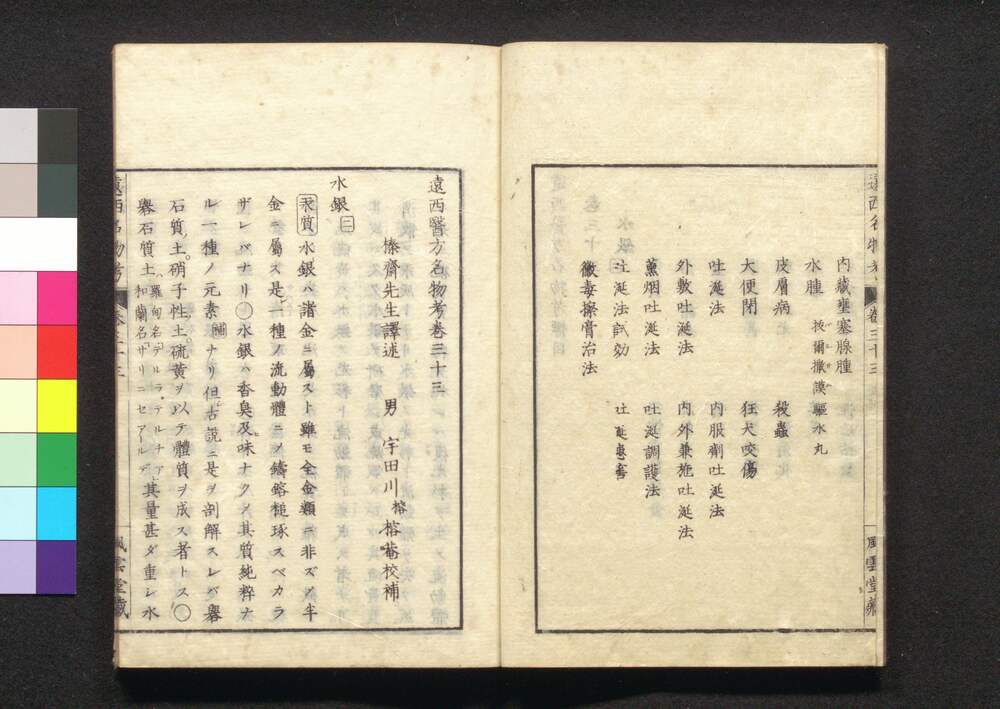 内藏壅塞腺腫
水腫　按爾撒謨驅水丸
皮膚病　殺蟲
大便閉　狂犬咬傷
吐涎法　内服劑吐涎法
外敷吐涎法　内外兼施吐涎法
薫烟吐涎法　吐涎調護法
吐涎法試効　吐涎患害
黴毒擦膏治法
卷三十三
風雲堂藏
遠西醫方名物考卷三十三
榛齋先生譯述　男　宇田川榕　榕菴校補
水銀三
形質水銀ハ諸金ニ屬スト雖モ全金類ニ非ズ乃半
金ニ屬ス是レ一種ノ流動體ニメ鑄鎔槌琢スベカラ
ザレバナリ○水銀ハ香臭及ビ味ナクメ其質純粹ナ
ル一種ノ元素補ナリ但古説ニ是ヲ剖解スレバ礬
石質土硝子性土硫黄ヲ以テ體質ヲ成ス者トス○
礬石質土ハ羅甸名テルラアルナア和蘭名 其量甚ダ重シ水
遠西名物考
風雲堂藏